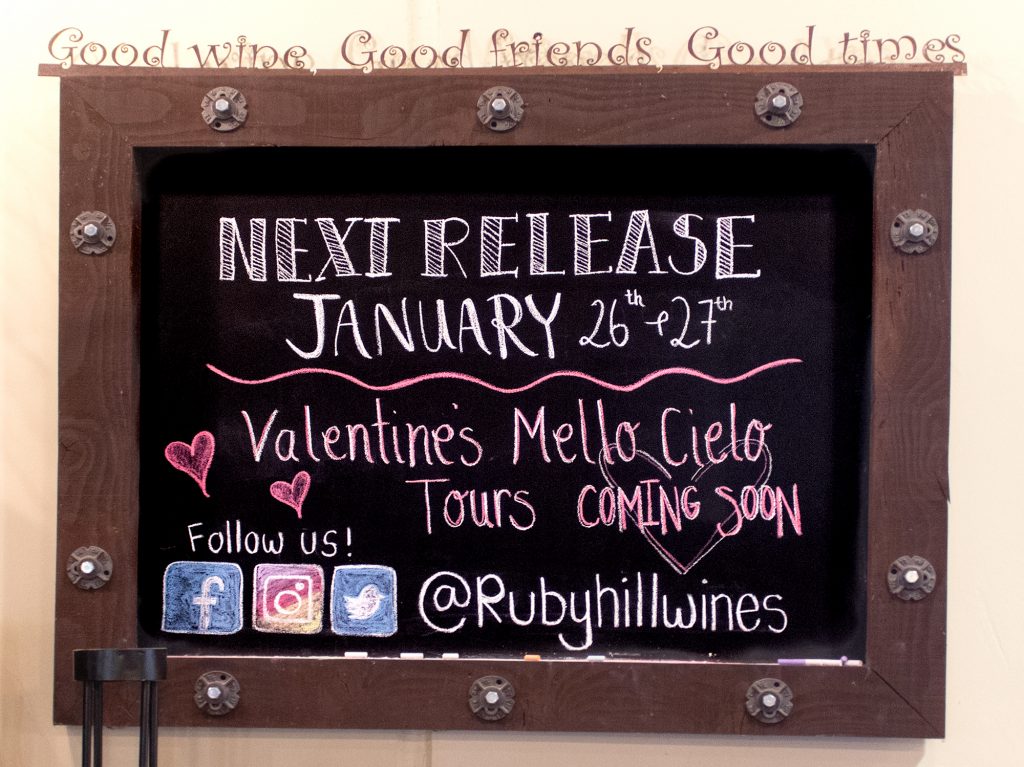 Good wine, Good friends, Good times
NEXT RELEASE
JANUARY 26th + 27th
Valentine's Mello Cielo
Tours COMING SOON
Follow us!
f @Rubyhillwines